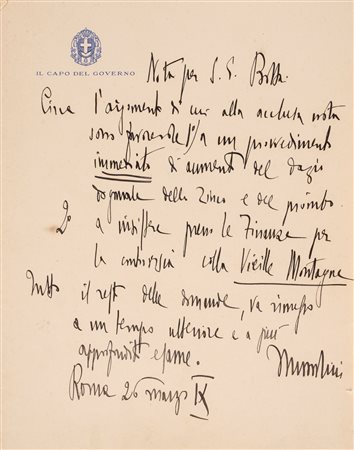 IL CAPO DEL GOVERNO
Nota per S. E. Botta.
Circa l'argomento di cui alla acclusa nota
sono favorevole 1°/ a un provvedimento
immediato di aumento del dazio
doganale dello zinco e del piombo.
2° a insistere presso le Finanze per
la controversia colla Vieille Montagne
Tutto il resto delle domande, va rimesso
a un tempo ulteriore e a più
approfondito esame.
Mussolini
Roma 26 marzo IX